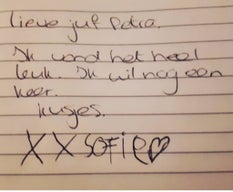 lieve juf Petra.
Ik vond het heel
leuk. Ik wil nog een
keer.
kusjes.
XXSOFIE♡